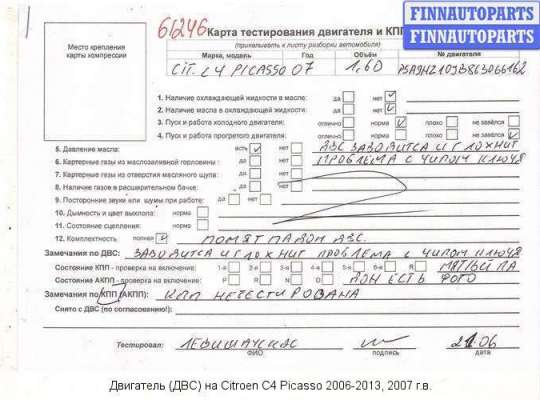 FINNAUTOPARTS
FINNAUTOPARTS
61246 Карта тестирования двигателя и КПП
(прикалывать к листу разборки автомобиля)
Место крепления карты компрессии
Марка, модель Год Объём № двигателя
CIT. C4 PICASSO 07 1,60 PSA9HZ10JB863066162
1. Наличие охлаждающей жидкости в масле: да нет
2. Наличие масла в охлаждающей жидкости: да нет
3. Пуск и работа холодного двигателя: отлично норма плохо не завёлся
4. Пуск и работа прогретого двигателя: отлично норма плохо не завёлся
5. Давление масла: есть нет ДВС ЗАВОДИТСЯ И ГЛОХНИТ
6. Картерные газы из маслозаливной горловины : да нет ПРОБЛЕМА С ЧИПОМ КЛЮЧА
7. Картерные газы из отверстия масляного щупа: да нет
8. Наличие газов в расширительном бачке: да нет
9. Посторонние звуки или шумы при работе: да нет
10. Дымность и цвет выхлопа: норма
11. Состояние сцепления: норма
12. Комплектность полная ПОМЯТ ПАДОН ДВС.
Замечания по ДВС: ЗАВОДИТСЯ И ГЛОХНИТ ПРОБЛЕМА С ЧИПОМ КЛЮЧА
Состояние КПП - проверка на включение: 1-я 2-я 3-я 4-я 5-я 6-я R МЯТЫЙ ПА
Состояние АКПП - проверка на включение: P R N D ДОН ЕСТЬ ФОТО
Замечания по КПП (АКПП): КПП НЕ ТЕСТИРОВАНА
Снято с ДВС (по согласованию!):
Тестировал: 21.06
ФИО подпись дата
Двигатель (ДВС) на Citroen C4 Picasso 2006-2013, 2007 г.в.